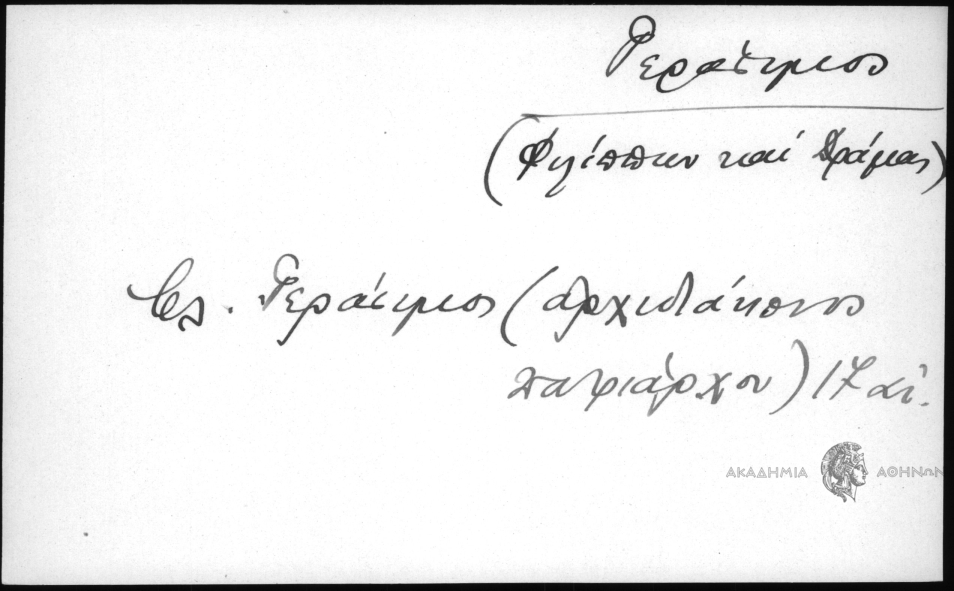 Γεράσιμος
(Φιλίππων καί Δράμας)
βλ. Γεράσιμος (αρχιδιάκονος
πατριάρχου) 17 αἰ.
ΑΚΑΔΗΜΙΑ ΑΘΗΝΩΝ